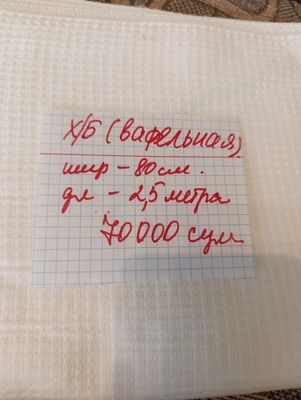 Х/Б (вафельная)
шир - 80 см.
дл - 2,5 метра
70000 сум